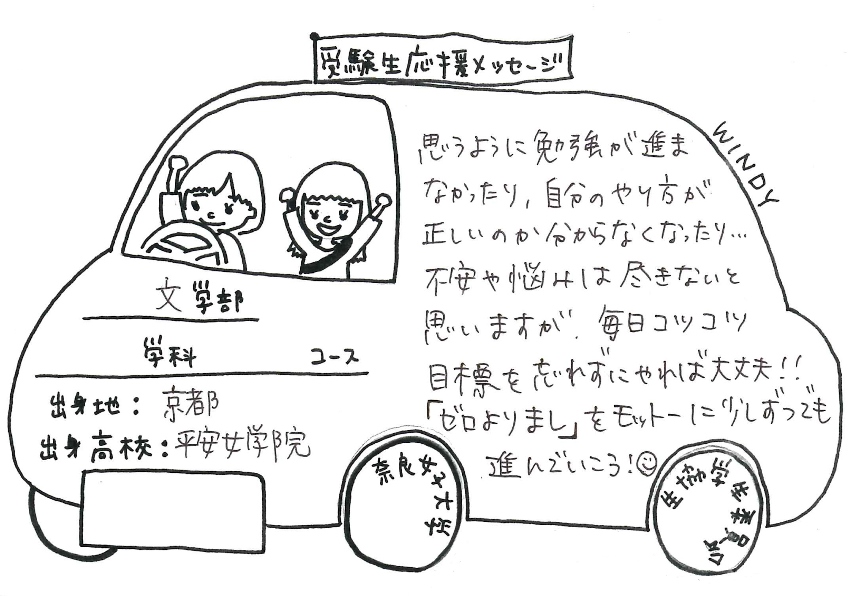 受験生応援メッセージ
WINDY
思うように勉強が進ま
なかったり,自分のやり方が
正しいのか分からなくなったり…
不安や悩みは尽きないと
思いますが、毎日コツコツ
目標を忘れずにやれば大丈夫!!
「ゼロよりまし」をモットーに少しずつでも
進んでいこう!☺
文学部
学科 コース
出身地:京都
出身高校:平安女学院
奈良女子大学
生協学生委員会